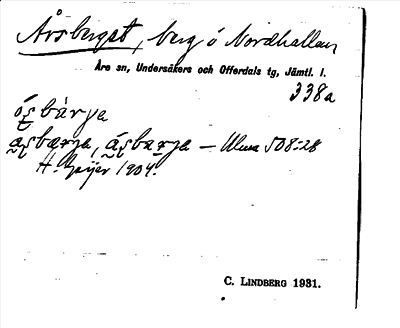 Åsberget, berg i Nordhallen
Åre sn, Undersåkers och Offerdals tg, Jämtl. l.
338a
ɑs̨bærja, ás̨bærja – Ulma 508:28
H. Geijer 1904.
C. LINDBERG 1931.